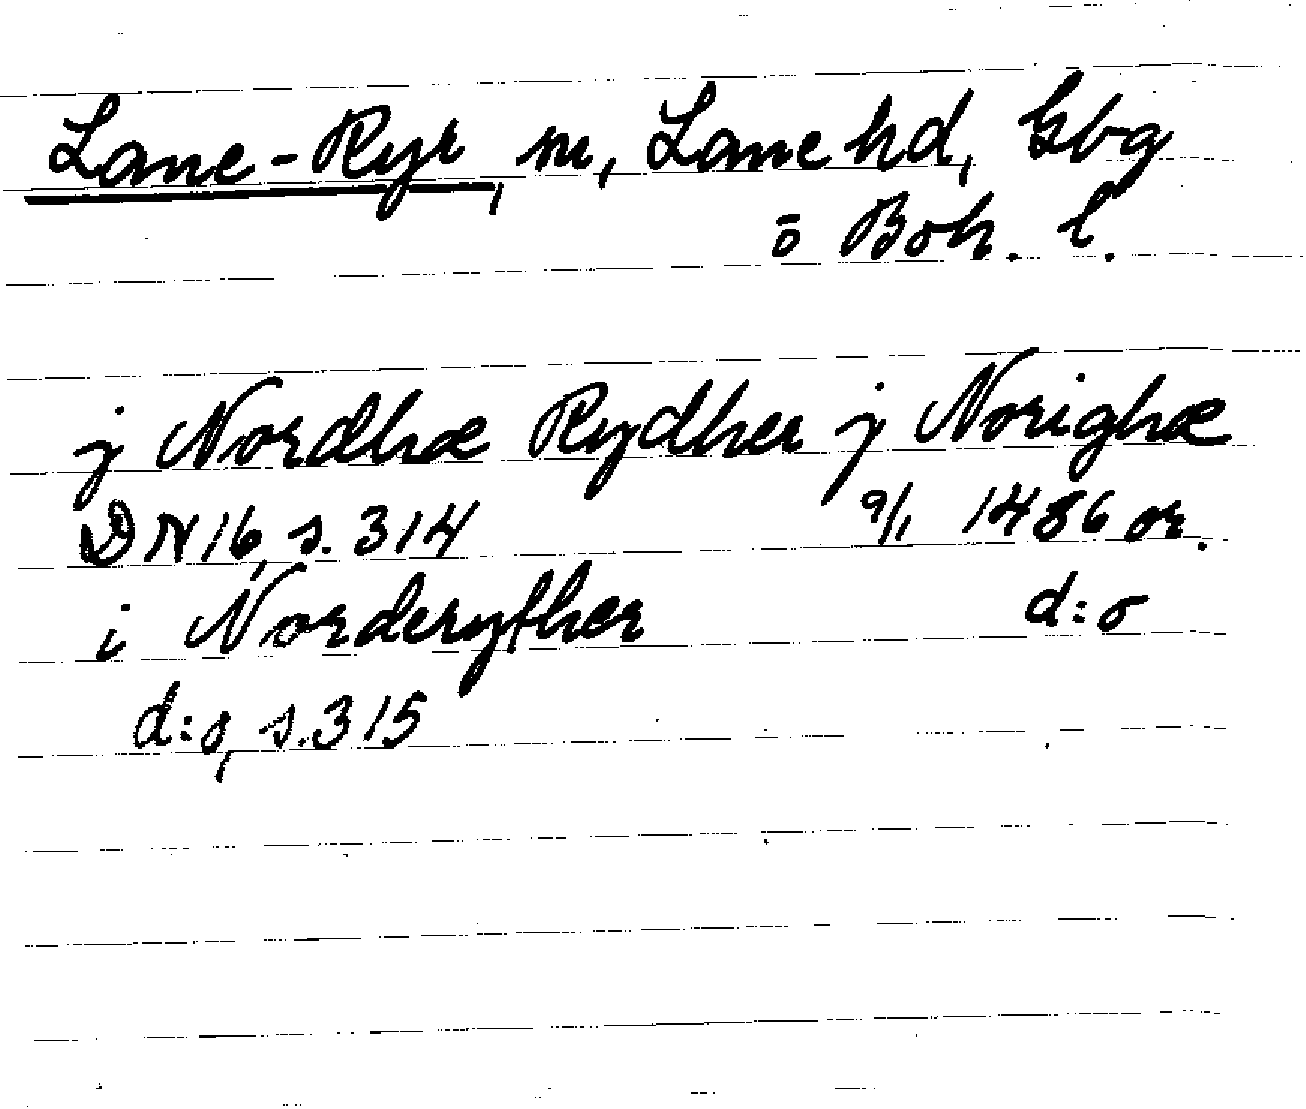 Lane-Ryr, sn, Lane hd, Gbg
o Boh. l.
j Nordhæ Rydher j Norighæ
DN 16, s. 314 9/1 1486 or.
i Norderyther d:o
d:o, s. 315